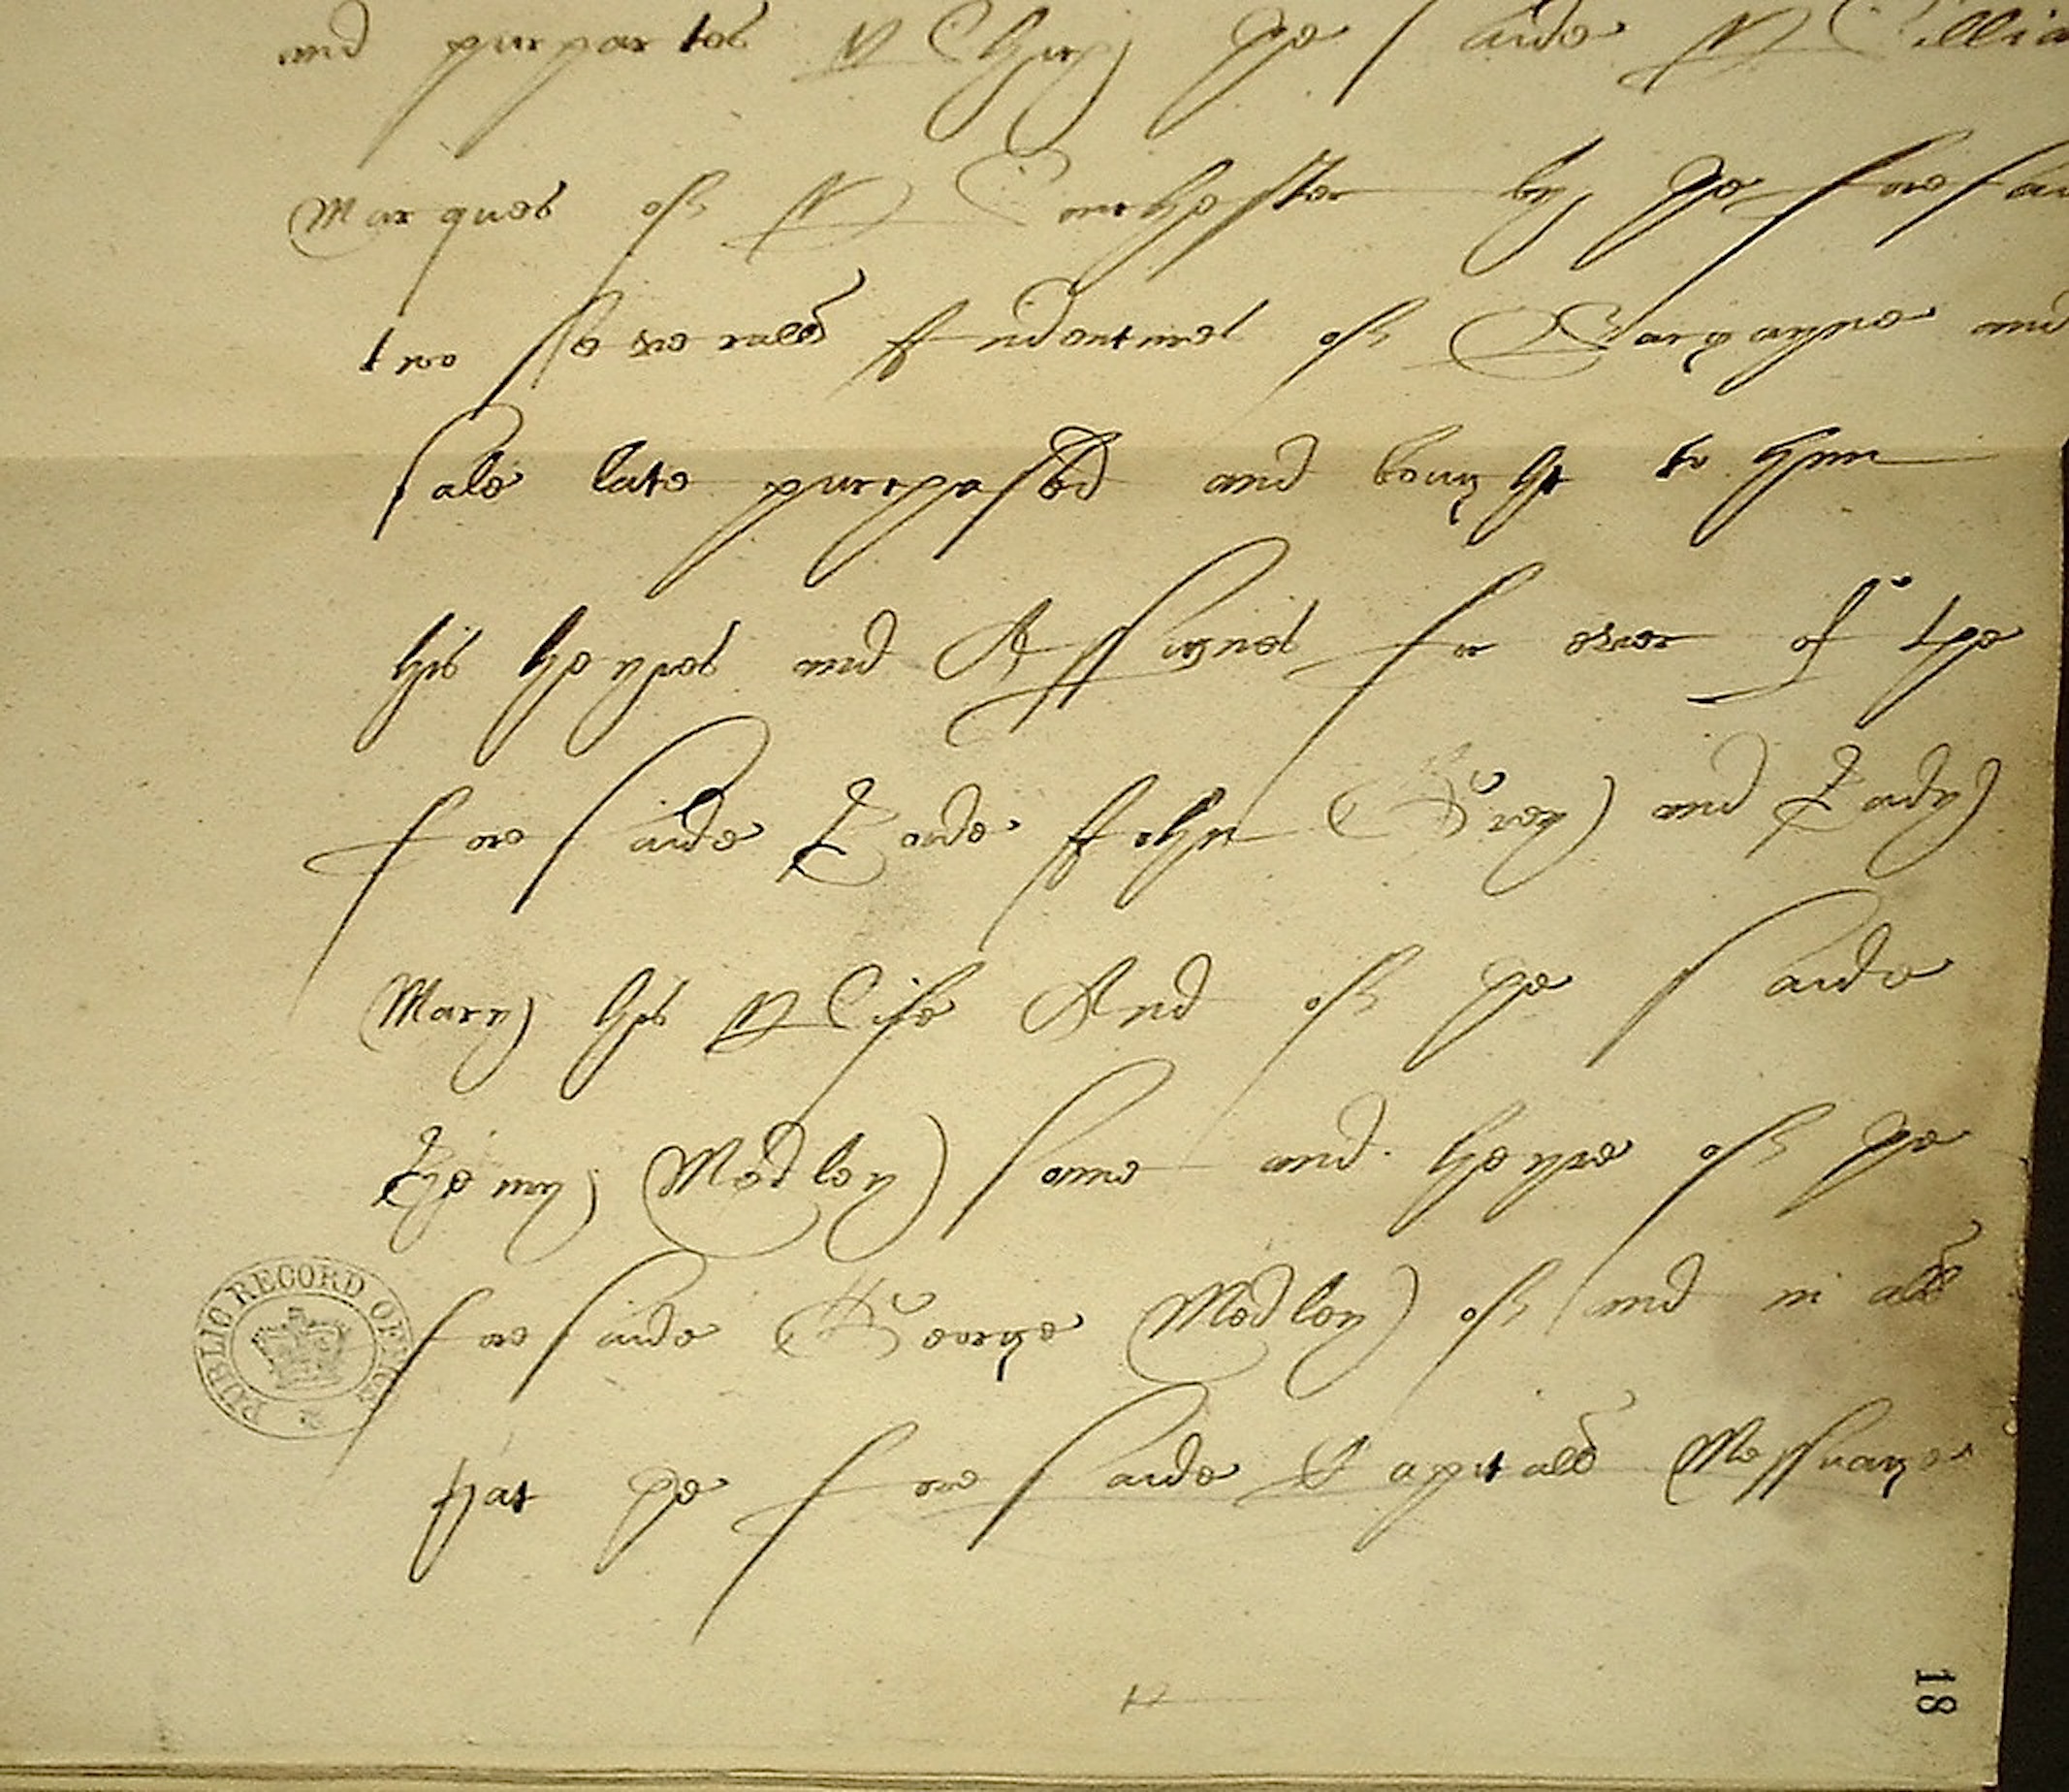 and purpartes Which the saide Willia
Marques of Winchester by the foresai
two severall Indentures of Bargayne and
Sale late purchased and bought to hym
his heyres and Assignes for ever of the
foresaide Lorde John Grey and Lady
Mary his Wife And of the saide
Henry Medley sonne and heyre of the
foresaide George Medley of and in all
that the foresaide Capitall Messuage
PUBLIC RECORD OFFICE
18